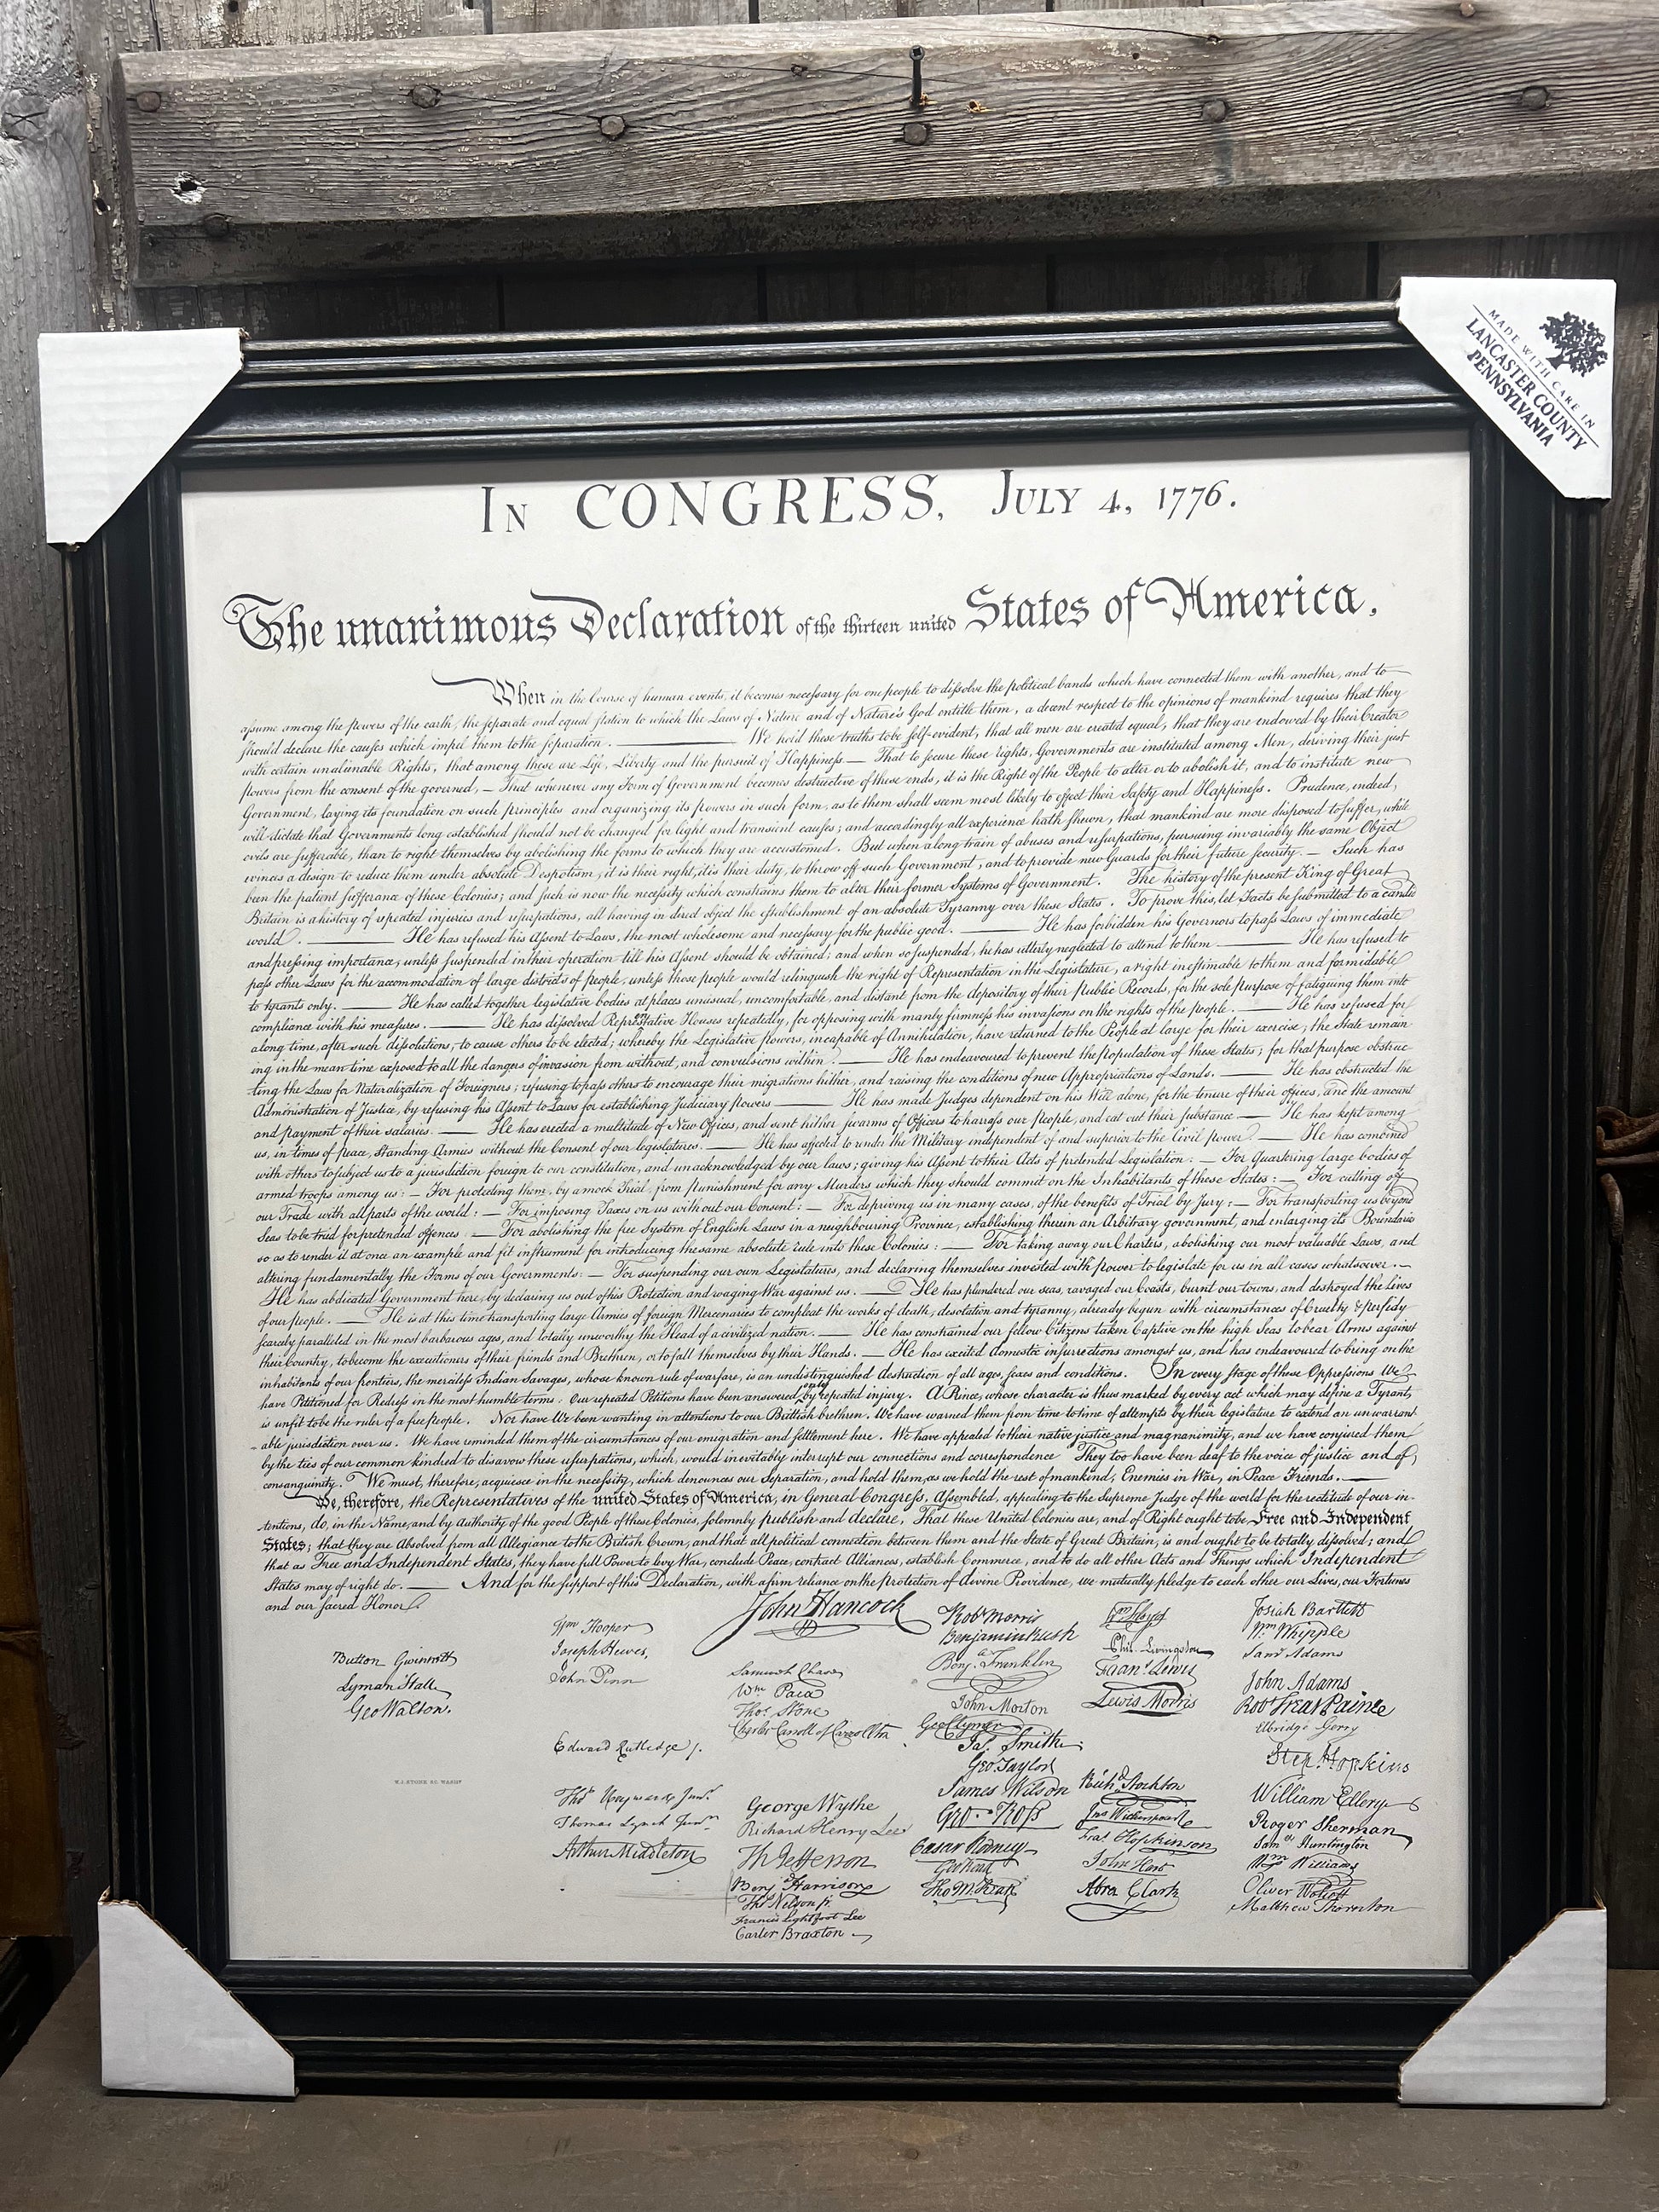 MADE WITH CARE IN
LANCASTER COUNTY
PENNSYLVANIA
In CONGRESS, July 4, 1776.
The unanimous Declaration of the thirteen united States of America,
When in the Course of human events, it becomes necessary for one people to dissolve the political bands which have connected them with another, and to
assume among the powers of the earth, the separate and equal station to which the Laws of Nature and of Nature's God entitle them, a decent respect to the opinions of mankind requires that they
should declare the causes which impel them to the separation. We hold these truths to be self-evident, that all men are created equal, that they are endowed by their Creator
with certain unalienable Rights, that among these are Life, Liberty and the pursuit of Happiness.— That to secure these rights, Governments are instituted among Men, deriving their just
powers from the consent of the governed, — That whenever any Form of Government becomes destructive of these ends, it is the Right of the People to alter or to abolish it, and to institute new
Government, laying its foundation on such principles and organizing its powers in such form, as to them shall seem most likely to effect their Safety and Happiness. Prudence, indeed,
will dictate that Governments long established should not be changed for light and transient causes; and accordingly all experience hath shewn, that mankind are more disposed to suffer, while
evils are sufferable, than to right themselves by abolishing the forms to which they are accustomed. But when a long train of abuses and usurpations, pursuing invariably the same Object
evinces a design to reduce them under absolute Despotism, it is their right, it is their duty, to throw off such Government, and to provide new Guards for their future security.— Such has
been the patient sufferance of these Colonies; and such is now the necessity which constrains them to alter their former Systems of Government. The history of the present King of Great
Britain is a history of repeated injuries and usurpations, all having in direct object the establishment of an absolute Tyranny over these States. To prove this, let Facts be submitted to a candid
world. He has refused his Assent to Laws, the most wholesome and necessary for the public good. He has forbidden his Governors to pass Laws of immediate
and pressing importance, unless suspended in their operation till his Assent should be obtained; and when so suspended, he has utterly neglected to attend to them. He has refused to
pass other Laws for the accommodation of large districts of people, unless those people would relinquish the right of Representation in the Legislature, a right inestimable to them and formidable
to tyrants only. He has called together legislative bodies at places unusual, uncomfortable, and distant from the depository of their Public Records, for the sole purpose of fatiguing them into
compliance with his measures. He has dissolved Representative Houses repeatedly, for opposing with manly firmness his invasions on the rights of the people. He has refused for
a long time, after such dissolutions, to cause others to be elected; whereby the Legislative powers, incapable of Annihilation, have returned to the People at large for their exercise; the State remain
ing in the mean time exposed to all the dangers of invasion from without, and convulsions within. He has endeavoured to prevent the population of these States; for that purpose obstruc-
ting the Laws for Naturalization of Foreigners; refusing to pass others to encourage their migrations hither, and raising the conditions of new Appropriations of Lands. He has obstructed the
Administration of Justice, by refusing his Assent to Laws for establishing Judiciary powers He has made Judges dependent on his Will alone, for the tenure of their offices, and the amount
and payment of their salaries. He has erected a multitude of New Offices, and sent hither swarms of Officers to harrass our people, and eat out their substance He has kept among
us, in times of peace, Standing Armies without the Consent of our legislatures. He has affected to render the Military independent of and superior to the Civil power. He has combined
with others to subject us to a jurisdiction foreign to our constitution, and unacknowledged by our laws; giving his Assent to their Acts of pretended Legislation: — For Quartering large bodies of
armed troops among us: — For protecting them, by a mock Trial, from punishment for any Murders which they should commit on the Inhabitants of these States: — For cutting off
our Trade with all parts of the world: — For imposing Taxes on us without our Consent: — For depriving us in many cases, of the benefits of Trial by Jury: — For transporting us beyond
Seas to be tried for pretended offences — For abolishing the free System of English Laws in a neighbouring Province, establishing therein an Arbitrary government, and enlarging its Boundaries
so as to render it at once an example and fit instrument for introducing the same absolute rule into these Colonies: — For taking away our Charters, abolishing our most valuable Laws, and
altering fundamentally the Forms of our Governments: — For suspending our own Legislatures, and declaring themselves invested with power to legislate for us in all cases whatsoever. —
He has abdicated Government here, by declaring us out of his Protection and waging War against us. — He has plundered our seas, ravaged our Coasts, burnt our towns, and destroyed the Lives
of our people. — He is at this time transporting large Armies of foreign Mercenaries to compleat the works of death, desolation and tyranny, already begun with circumstances of Cruelty & perfidy
scarcely paralleled in the most barbarous ages, and totally unworthy the Head of a civilized nation. — He has constrained our fellow Citizens taken Captive on the high Seas to bear Arms against
their Country, to become the executioners of their friends and Brethren, or to fall themselves by their Hands. — He has excited domestic insurrections amongst us, and has endeavoured to bring on the
inhabitants of our frontiers, the merciless Indian Savages, whose known rule of warfare, is an undistinguished destruction of all ages, sexes and conditions. In every stage of these Oppressions We
have Petitioned for Redress in the most humble terms: Our repeated Petitions have been answered only by repeated injury. A Prince, whose character is thus marked by every act which may define a Tyrant,
is unfit to be the ruler of a free people. Nor have We been wanting in attentions to our Brittish brethren. We have warned them from time to time of attempts by their legislature to extend an unwarrant-
able jurisdiction over us. We have reminded them of the circumstances of our emigration and settlement here. We have appealed to their native justice and magnanimity, and we have conjured them
by the ties of our common kindred to disavow these usurpations, which, would inevitably interrupt our connections and correspondence They too have been deaf to the voice of justice and of
consanguinity. We must, therefore, acquiesce in the necessity, which denounces our Separation, and hold them, as we hold the rest of mankind, Enemies in War, in Peace Friends. —
We, therefore, the Representatives of the united States of America, in General Congress, Assembled, appealing to the Supreme Judge of the world for the rectitude of our in-
tentions, do, in the Name, and by Authority of the good People of these Colonies, solemnly publish and declare, That these United Colonies are, and of Right ought to be Free and Independent
States; that they are Absolved from all Allegiance to the British Crown, and that all political connection between them and the State of Great Britain, is and ought to be totally dissolved; and
that as Free and Independent States, they have full Power to levy War, conclude Peace, contract Alliances, establish Commerce, and to do all other Acts and Things which Independent
States may of right do. — And for the support of this Declaration, with a firm reliance on the protection of divine Providence, we mutually pledge to each other our Lives, our Fortunes
and our sacred Honor.
Button Gwinnett
Lyman Hall
Geo Walton.
W.J. STONE SC. WASHN
Wm Hooper
Joseph Hewes,
John Penn
Edward Rutledge /.
Thos Heyward Junr.
Thomas Lynch Junr.
Arthur Middleton
John Hancock
Samuel Chase
Wm Paca
Thos Stone
Charles Carroll of Carrollton
George Wythe
Richard Henry Lee
Th Jefferson
Benj Harrison
Thos Nelson jr.
Francis Lightfoot Lee
Carter Braxton
Robt Morris
Benjamin Rush
Benja Franklin
John Morton
Geo Clymer
Jas. Smith
Geo. Taylor
James Wilson
Geo. Ross
Caesar Rodney
Geo Read
Tho M:Kean
Wm Floyd
Phil. Livingston
Frans. Lewis
Lewis Morris
Richd. Stockton
Jno Witherspoon
Fras. Hopkinson
John Hart
Abra Clark
Josiah Bartlett
Wm Whipple
Saml Adams
John Adams
Robt Treat Paine
Elbridge Gerry
Step. Hopkins
William Ellery
Roger Sherman
Saml Huntington
Wm Williams
Oliver Wolcott
Matthew Thornton